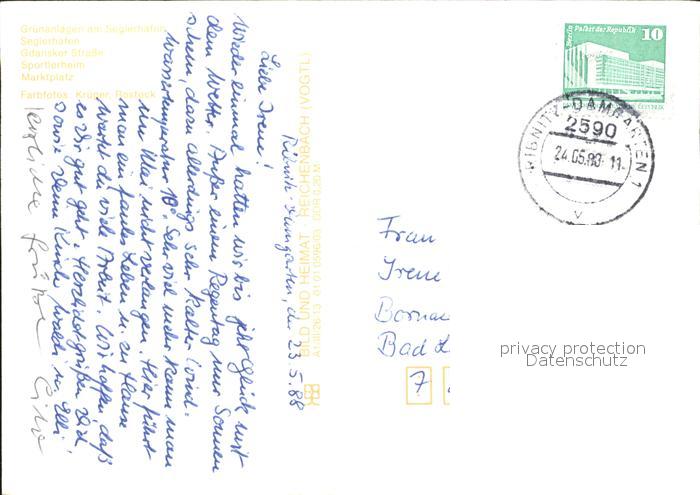 Grünanlagen am Seglerhafen
Seglerhafen
Gdansker Straße
Sportlerheim
Marktplatz
Farbfotos: Krüger, Rostock
BILD UND HEIMAT · REICHENBACH (VOGTL)
A1/III/26-13 01 01 0596/03 DDR 0,20 M
Ribnitz-Damgarten, d. 23.5.88
Liebe Irene!
Wieder einmal hatten wir bis jetzt Glück mit
dem Wetter. Außer einem Regentag nur Sonnen
schein, dazu allerdings sehr kalter Wind.
Wassertemperatur 10°. Sehr viel mehr kann man
im Mai nicht verlangen. Hier führt
man ein faules Leben u. zu Hause
wartet die viele Arbeit. Wir hoffen, daß
es Dir gut geht. Herzlichst grüßen Dich
sowie Deine Kinder
Herzliche Grüße
Berlin Palast der Republik
10
RIBNITZ-DAMGARTEN 1
2590
24.05.88-11
v
Frau
Irene
Bornae
Bad L
7
privacy protection
Datenschutz